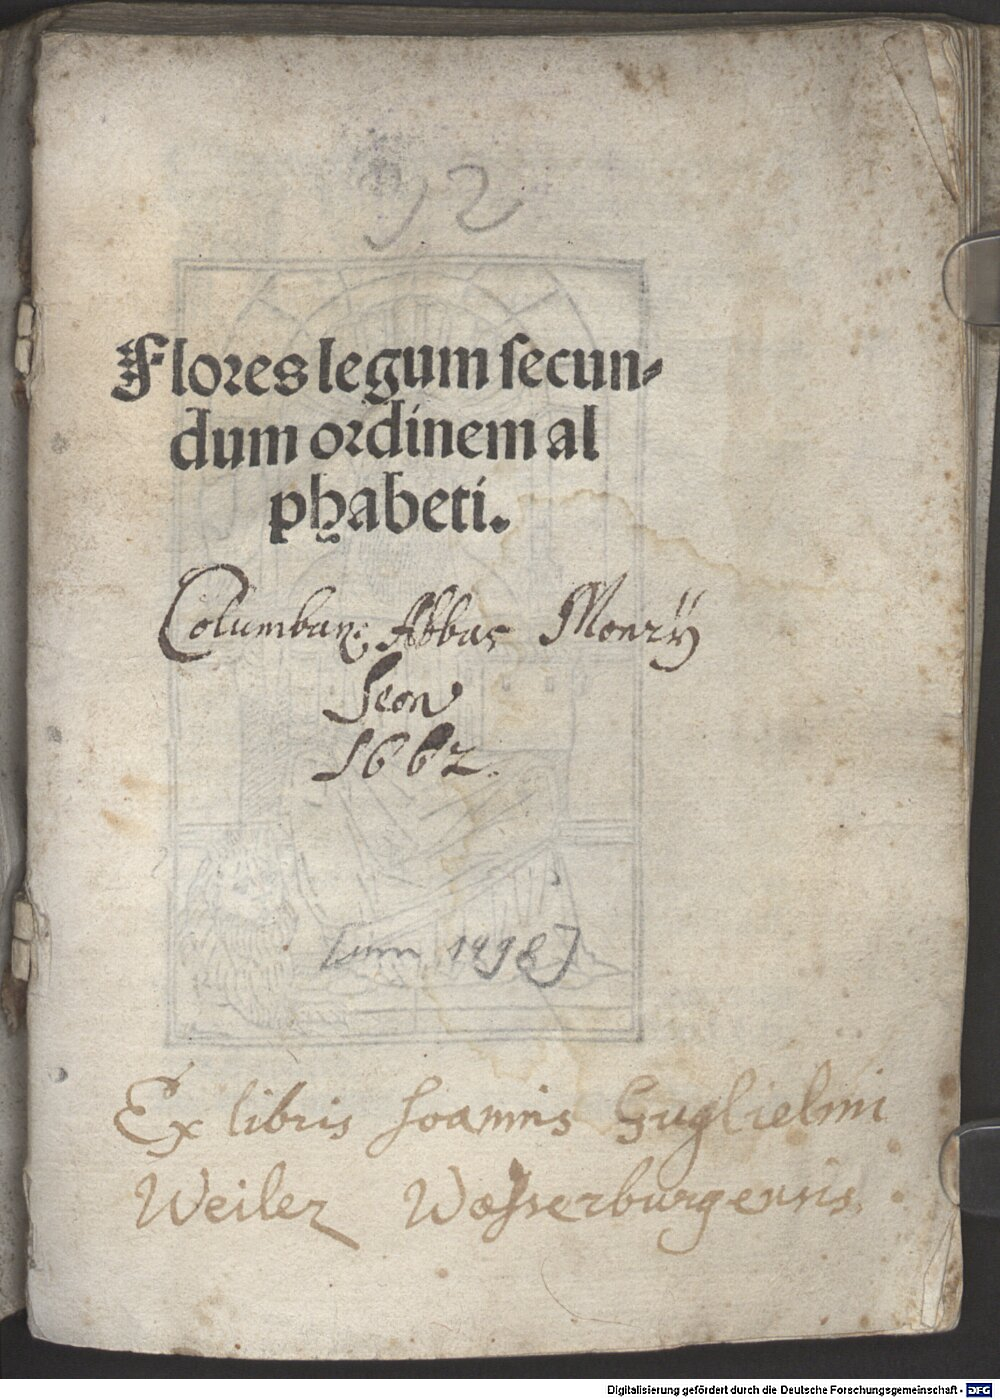 92
Flores legum secun-
dum ordinem al
phabeti.
Columban9 Abbas Monrÿ
Seon
1662.
[um 1498]
Ex libris Joannis Guglielmi
Weiler Wasserburgensis.
Digitalisierung gefördert durch die Deutsche Forschungsgemeinschaft - DFG